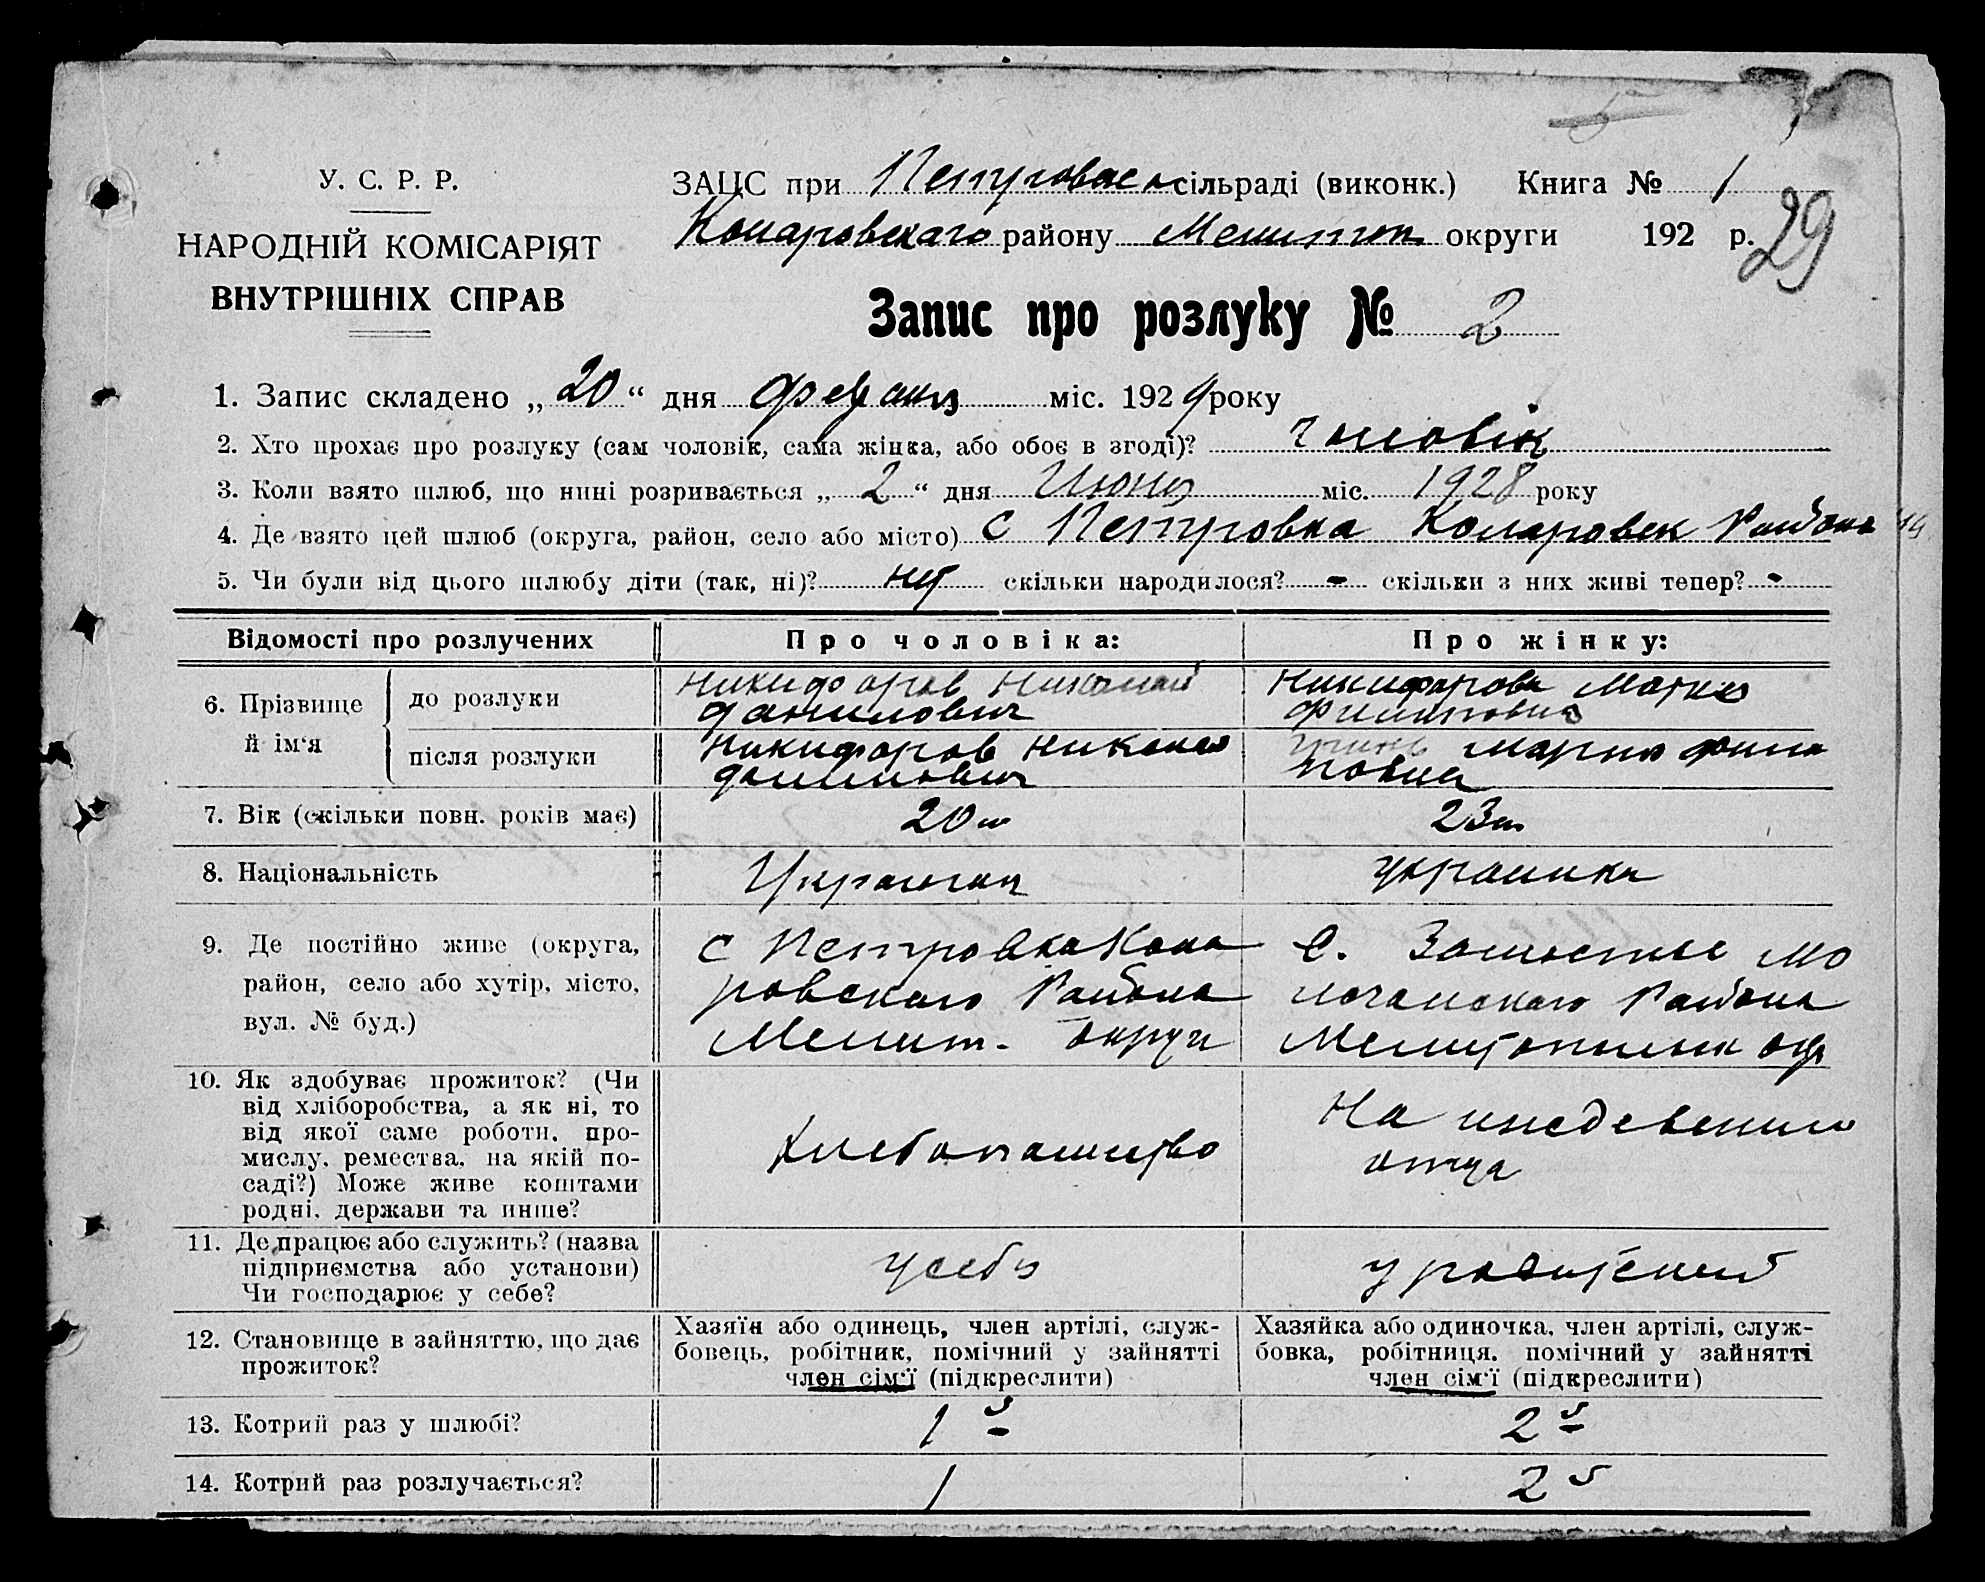 5
У. С. Р. Р.
НАРОДНІЙ КОМІСАРІЯТ
ВНУТРІШНІХ СПРАВ
ЗАЦС при Петровск сільраді (виконк.) Книга № 1
Комаровскаго району Мелитоп округи 192 р.
29
Запис про розлуку № 2
1. Запис складено „ 20 “ дня міс. 1929 року
2. Хто прохає про розлуку (сам чоловік, сама жінка, або обоє в згоді)? чоловік
3. Коли взято шлюб, що нині розривається „ 2 “ дня Июня міс. 1928 року
4. Де взято цей шлюб (округа, район, село або місто) с Петровка Комаровск Района
5. Чи були від цього шлюбу діти (так, ні)? нет скільки народилося? - скільки з них живі тепер? -
Відомості про розлучених
Про чоловіка:
Про жінку:
6. Прізвище й ім'я
до розлуки
Никифоров Николай
Данилович
Никифорова Мария
Филиповна
після розлуки
Никифоров Николай
Данилович
Мария Фили
повна
7. Вік (скільки повн. років має)
20
23
8. Національність
Украинец
украинка
9. Де постійно живе (округа,
район, село або хутір, місто,
вул. № буд.)
с Петровка Кома
ровскаго Района
Мелит. округи
с. Мо
лочанскаго Района
Мелитопольск окр
10. Як здобуває прожиток? (Чи
від хліборобства, а як ні, то
від якої саме роботи, про-
мислу, ремества, на якій по-
саді?) Може живе коштами
родні, держави та инше?
Хлебопашество
На иждевении
отца
11. Де працює або служить? (назва
підприємства або установи)
Чи господарює у себе?
у себя
у родителей
12. Становище в зайняттю, що дає
прожиток?
Хазяїн або одинець, член артілі, служ-
бовець, робітник, помічний у зайнятті
член сім'ї (підкреслити)
Хазяйка або одиночка, член артілі, служ-
бовка, робітниця, помічний у зайнятті
член сім'ї (підкреслити)
13. Котрий раз у шлюбі?
1й
2й
14. Котрий раз розлучається?
1
2й